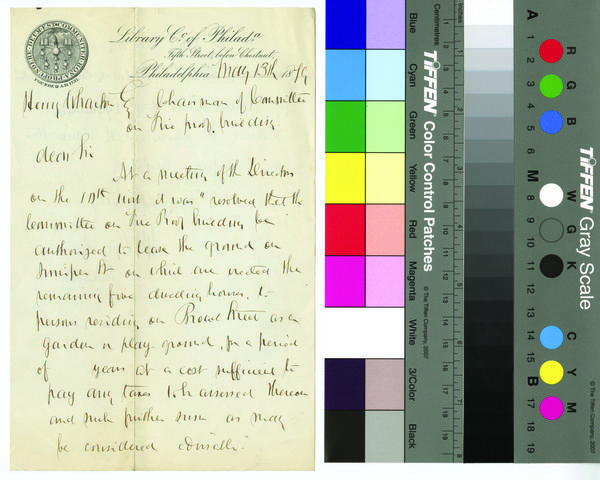 Library Co. of Philada.
Fifth Street, below Chestnut,
Philadelphia May 13th 1879
Henry Wharton Esq Chairman of Committee
on Fire proof building
dear Sir
At a meeting of the Directors
on the 10th inst it was "resolved that the
Committee on Fire Proof building be
authorized to lease the ground on
Juniper St on which are erected the
remaining five dwelling houses, to
persons residing on Broad Street as a
garden or play ground, for a period
of years at a cost sufficient to
pay any taxes to be assessed thereon
and such further sum as may
be considered
Blue
Cyan
Green
Yellow
Red
Magenta
White
3/Color
Black
Centimetres
TIFFEN Color Control Patches
© The Tiffen Company, 2007
Inches
1 2 3 4 5 6 7 8
A
1
2
3
4
5
6
M
8
9
10
11
12
13
14
15
B
17
18
19
R
G
B
W
G
K
C
Y
M
TIFFEN Gray Scale
© The Tiffen Company, 2007